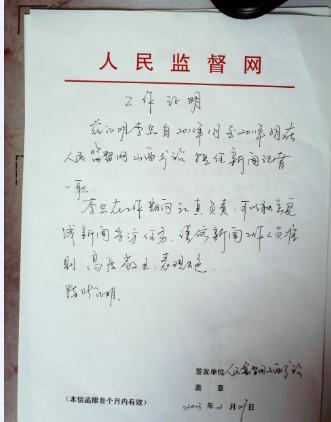 人民监督网
工作证明
兹证明李 自201 年 月至201 年 月在
人民监督网山西 担任新闻记者
一职。
李 在工作期间认真负责，可以独立完
成新闻采访任务，谨 新闻工作人员准
则，高度敬业，表现 色。
特此证明。
签发单位：人民监督网山西
盖 章
2013 年 2 月 日
（本信函限叁个月内有效）